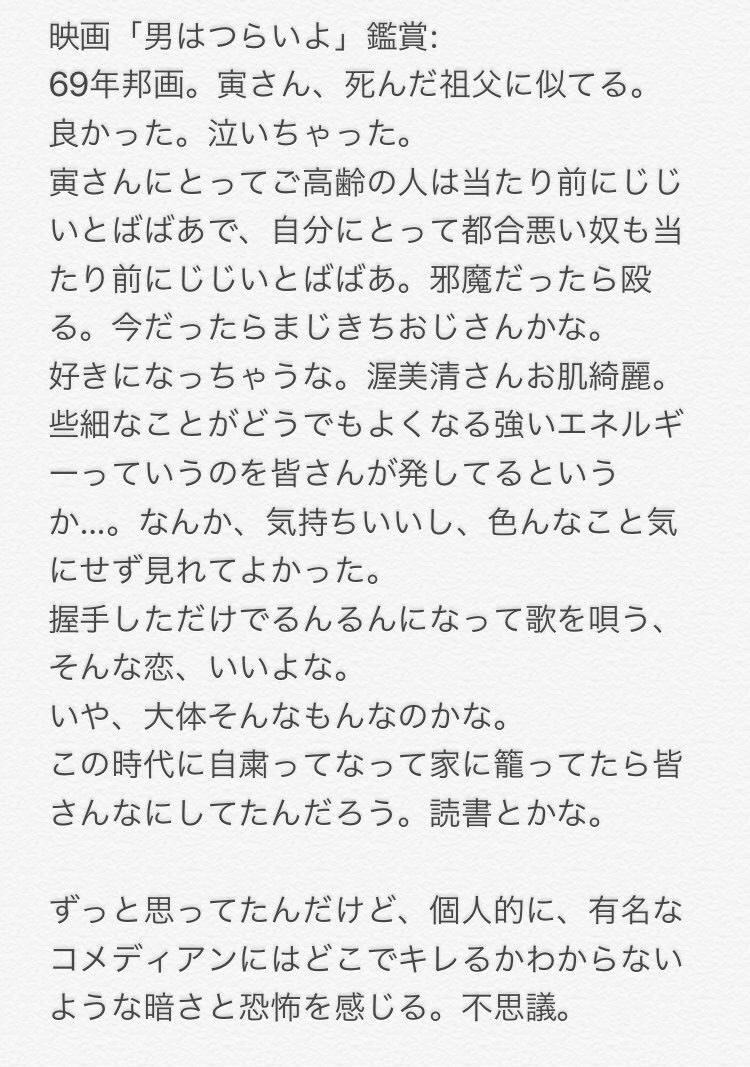 映画「男はつらいよ」鑑賞:
69年邦画。寅さん、死んだ祖父に似てる。
良かった。泣いちゃった。
寅さんにとってご高齢の人は当たり前にじじ
いとばばあで、自分にとって都合悪い奴も当
たり前にじじいとばばあ。邪魔だったら殴
る。今だったらまじきちおじさんかな。
好きになっちゃうな。渥美清さんお肌綺麗。
些細なことがどうでもよくなる強いエネルギ
ーっていうのを皆さんが発してるという
か...。なんか、気持ちいいし、色んなこと気
にせず見れてよかった。
握手しただけでるんるんになって歌を唄う、
そんな恋、いいよな。
いや、大体そんなもんなのかな。
この時代に自粛ってなって家に籠ってたら皆
さんなにしてたんだろう。読書とかな。
ずっと思ってたんだけど、個人的に、有名な
コメディアンにはどこでキレるかわからない
ような暗さと恐怖を感じる。不思議。